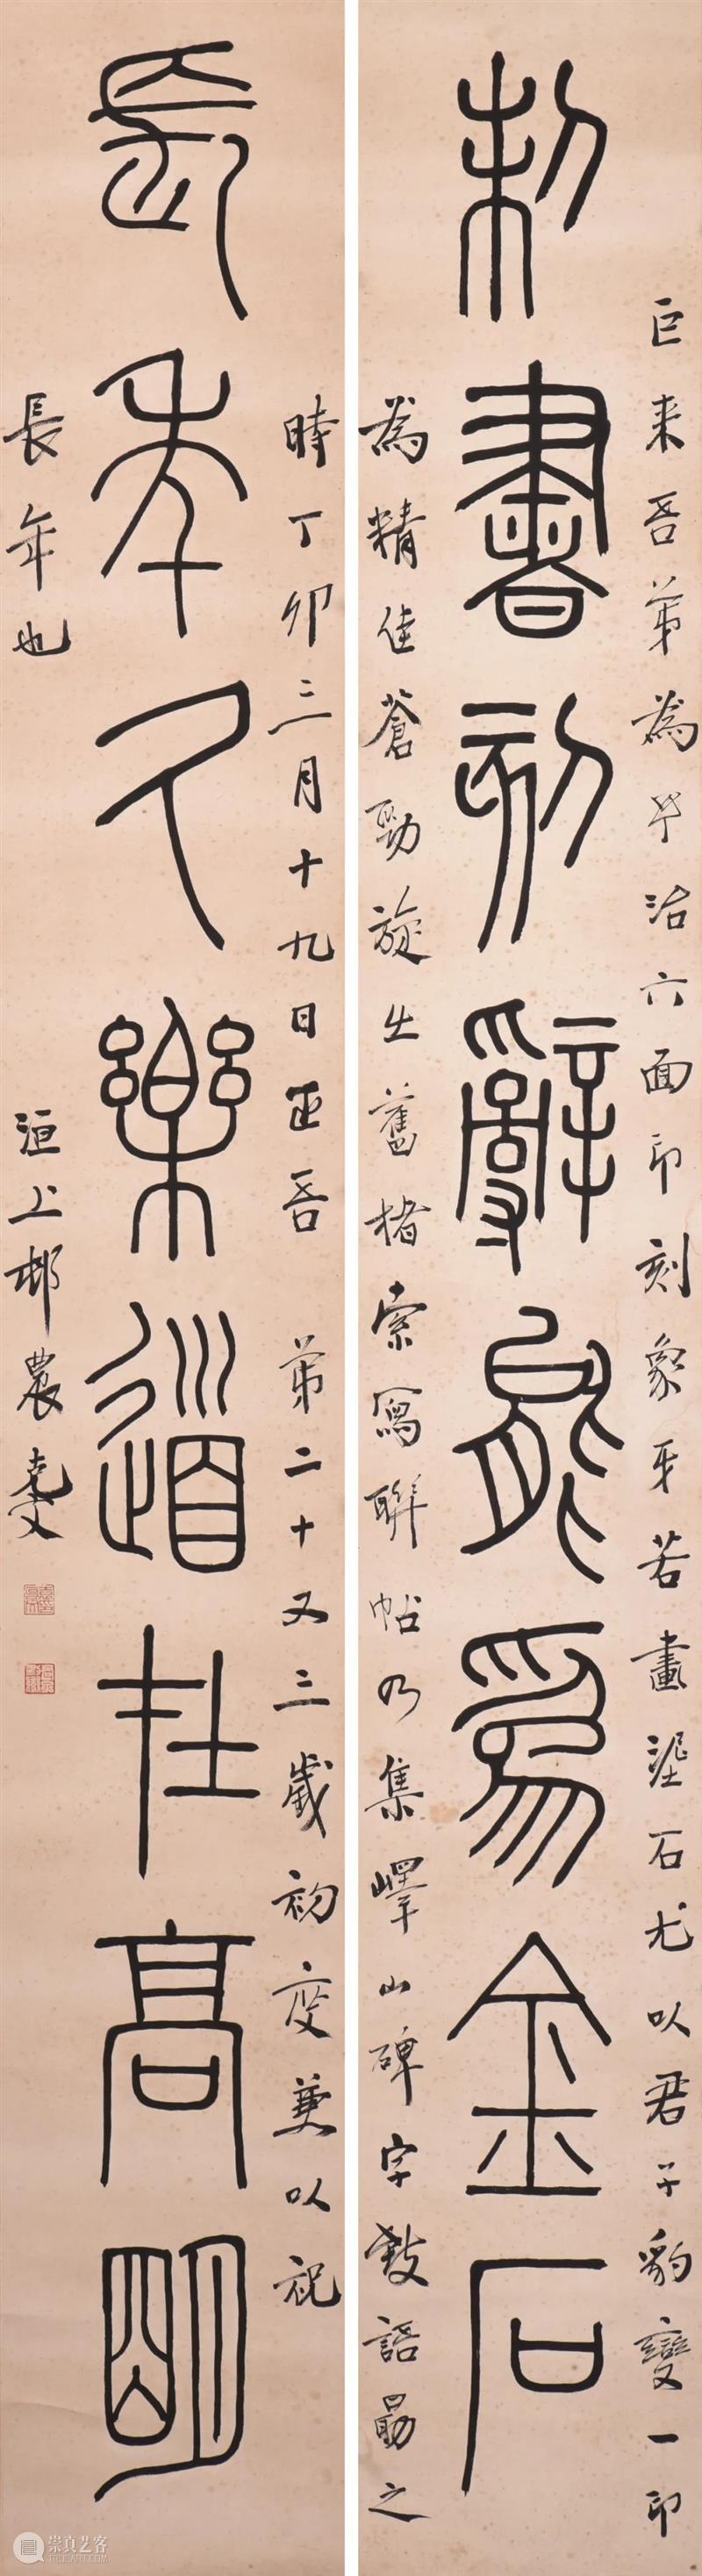 制書刻辭能為金石
巨来吾弟為予治六面印刻象牙若畫埿石尤以君子豹變一印
為精佳蒼勁旋出舊楮索寫聯帖乃集嶧山碑字數語勗之
長年久樂道在高明
時丁卯三月十九日正吾弟二十又三歲初度兼以祝
長年也
洹上邨農克文
崇真艺客